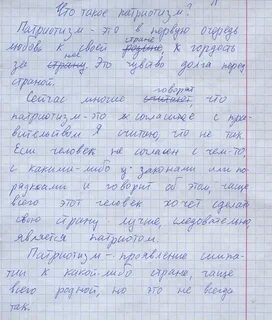 Что такое патриотизм?
Патриотизм - это в первую очередь
любовь к своей родине стране, гордость
за страну нее. Это чувство долга перед
страной.
Сейчас многие считают говорят, что
патриотизм - это согласие с пра-
вительством. Я считаю, что не так.
Если человек не согласен с чем-то,
с какими-либо законами или по-
рядками и говорит об этом, чаще
всего этот человек хочет сделать
свою страну лучше, следовательно
является патриотом.
Патриотизм - проявление симпа-
тии к какой-либо стране, чаще
всего родной, но это не всегда
так.